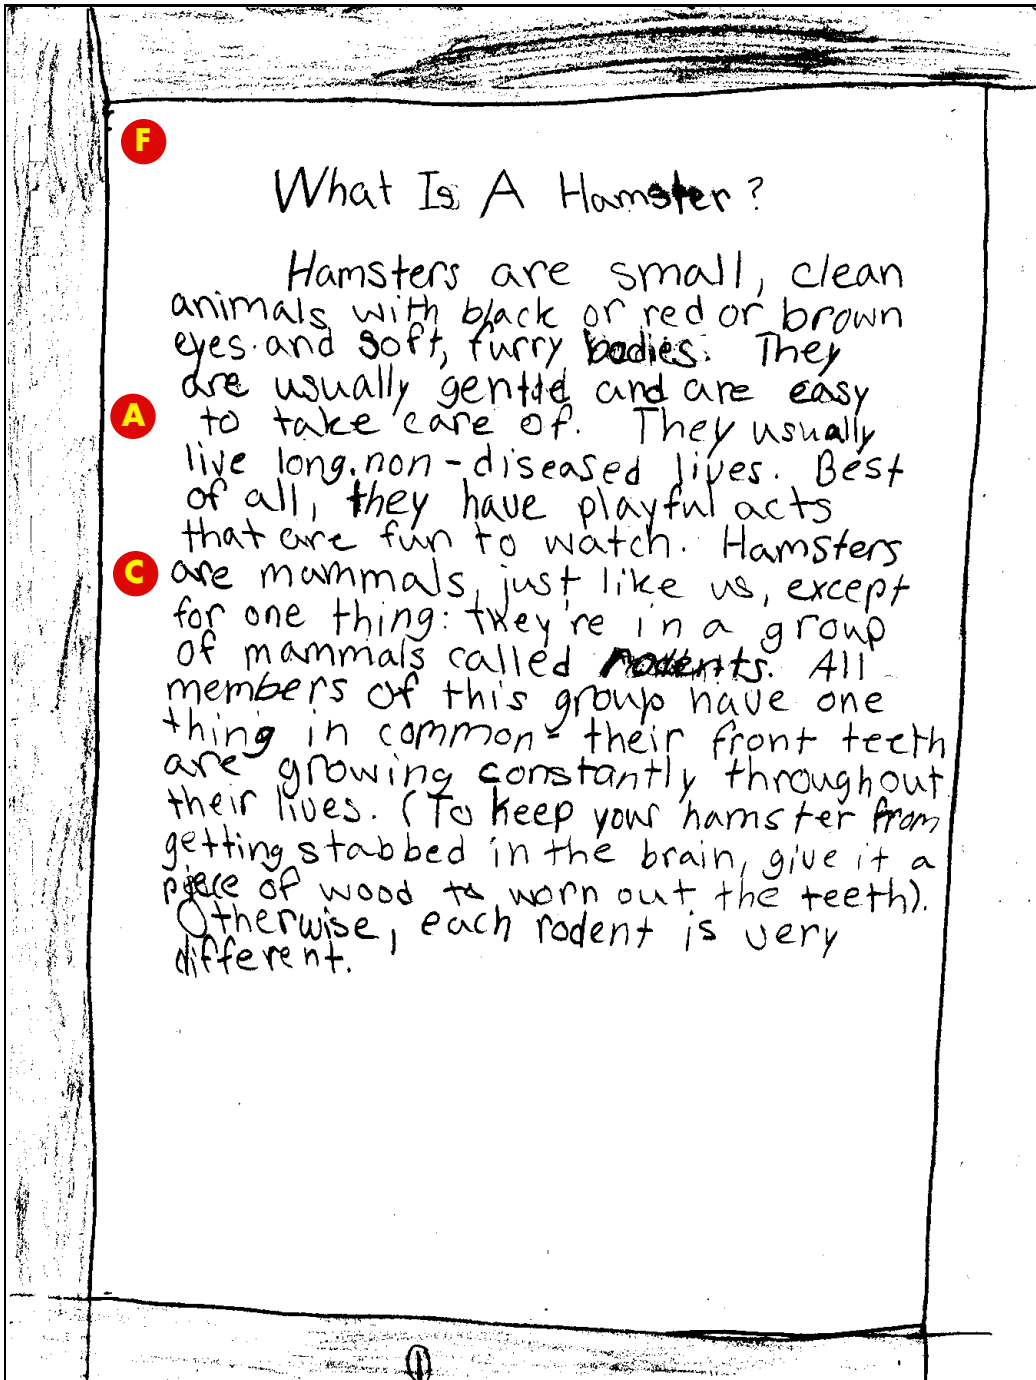 F
What Is A Hamster?
Hamsters are small, clean
animals with black or red or brown
eyes and soft, furry bodies. They
are usually gentle and are easy
A
to take care of. They usually
live long, non-diseased lives. Best
of all, they have playful acts
that are fun to watch. Hamsters
C
are mammals, just like us, except
for one thing: they're in a group
of mammals called rodents. All
members of this group have one
thing in common - their front teeth
are growing constantly throughout
their lives. (To keep your hamster from
getting stabbed in the brain, give it a
piece of wood to worn out the teeth).
Otherwise, each rodent is very
different.
1